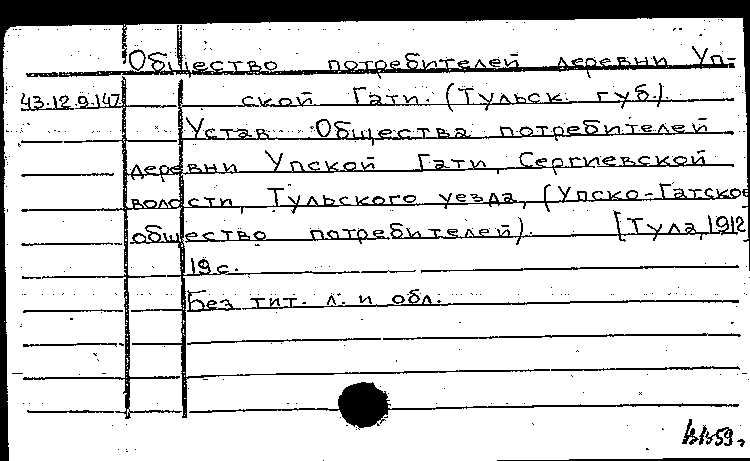 Общество потребителей деревни Уп-
43.12.9.147 ской Гати. (Тульск. губ.)
Устав Общества потребителей
деревни Упской Гати, Сергиевской
волости, Тульского уезда, (Упско-Гатское
общество потребителей). [Тула, 1912]
19 с.
Без тит. л. и обл.